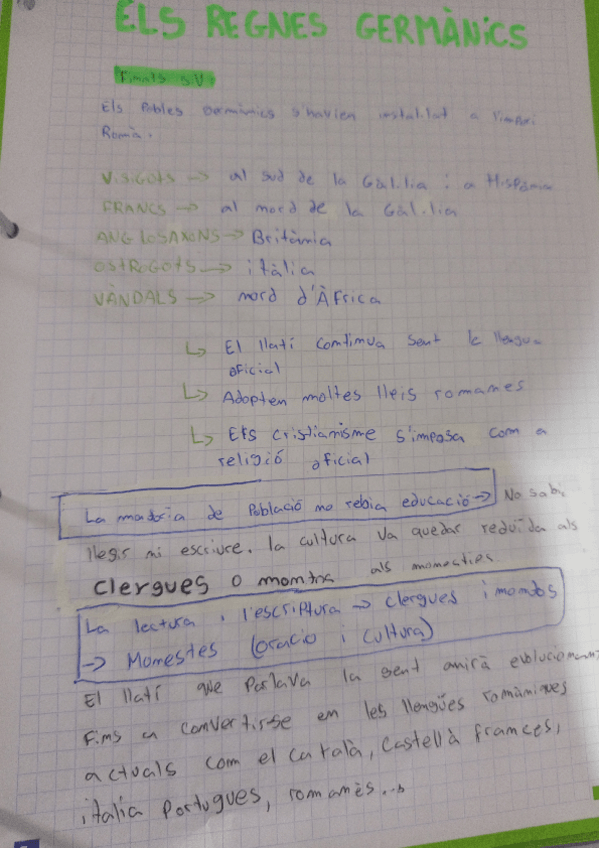 ELS REGNES GERMÀNICS
Finals s.V:
Els Pobles Germànics s'havien instal.lat a l'imperi
Romà.
VISIGOTS -> al sud de la Gàl.lia i a Hispània
FRANCS -> al nord de la Gàl.lia
ANGLOSAXONS -> Britània
OSTROGOTS -> itàlia
VÀNDALS -> nord d'ÀFrica
↳ El llatí continua sent la llengua
oficial
↳ Adopten moltes lleis romanes
↳ El cristianisme s'imposa com a
religió oficial
La majoria de Població no rebia educació -> No sabi
llegir ni escriure. la cultura va quedar reduïda als
clergues o als monestirs
La lectura i l'escriptura -> clergues i monjos
-> Monestes (oració i cultura)
El llatí que Parlava la gent anirà evolucionant
Fins a convertirse en les llengües romàniques
actuals com el Català, Castellà frances,
italia Portugues, romanès...